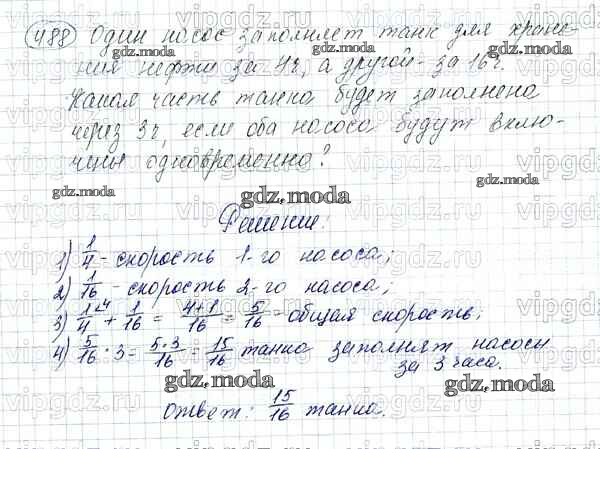 488 Один насос заполняет танк для хране-
ния нефти за 4ч, а другой - за 16ч.
Какая часть танка будет заполнена
через 3ч, если оба насоса будут вклю-
чены одновременно?
gdz.moda
Решение:
1) 1/4 - скорость 1-го насоса;
2) 1/16 - скорость 2-го насоса;
3) 1/4 + 1/16 = 4+1/16 = 5/16 - общая скорость;
4) 5/16 · 3 = 5·3/16 = 15/16 танка заполнят насосы
за 3 часа.
gdz.moda
Ответ: 15/16 танка.